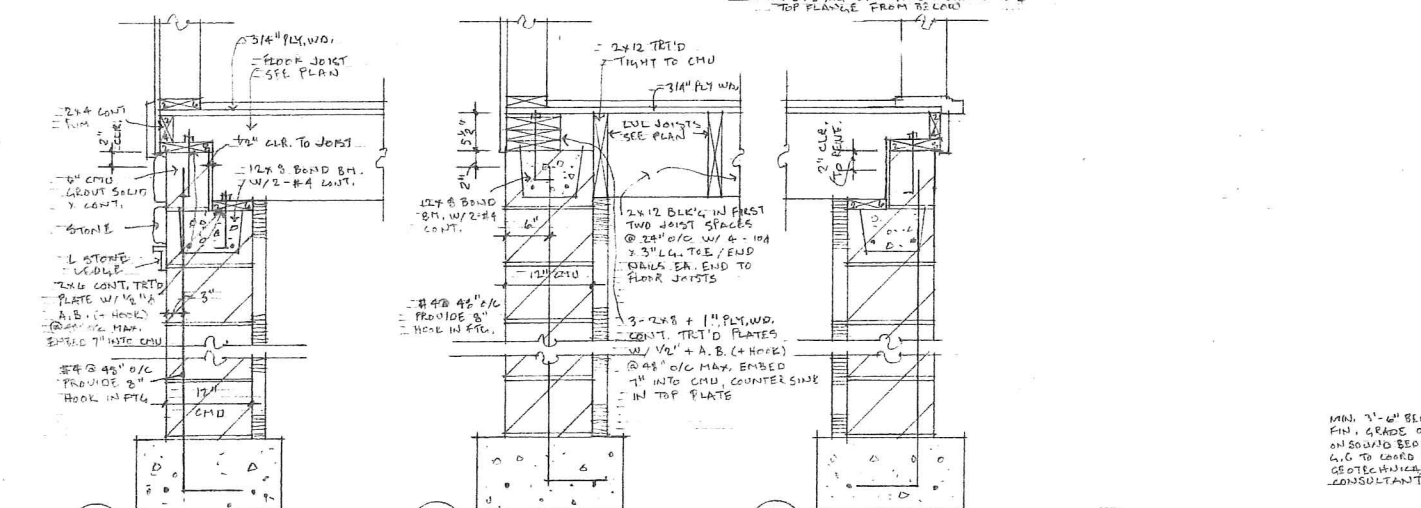 TOP FLANGE FROM BELOW
3/4" PLY.WD.
FLOOR JOIST
SEE PLAN
2x4 CONT
RIM
2" CLR.
1/2" CLR. TO JOIST
12x8 BOND BM.
W/ 2-#4 CONT.
6" CMU
GROUT SOLID
& CONT.
STONE
L STONE
LEDGE
2x6 CONT. TRT'D
PLATE W/ 1/2" ϕ
A.B. (+ HOOK)
@ 48" O/C MAX.
EMBED 7" INTO CMU
3"
#4 @ 48" O/C
PROVIDE 8"
HOOK IN FTG
12"
CMU
2x12 TRT'D
TIGHT TO CMU
3/4" PLY WD.
5 1/2"
2"
LVL JOISTS
SEE PLAN
12x8 BOND
BM. W/ 2-#4
CONT.
6"
12" CMU
2x12 BLK'G IN FIRST
TWO JOIST SPACES
@ 24" O/C W/ 4 - 10d
x 3" LG. TOE/END
NAILS EA. END TO
FLOOR JOISTS
#4 @ 48" O/C
PROVIDE 8"
HOOK IN FTG.
3-2x8 + 1" PLY.WD.
CONT. TRT'D PLATES
W/ 1/2" ϕ A.B. (+ HOOK)
@ 48" O/C MAX. EMBED
7" INTO CMU, COUNTER SINK
IN TOP PLATE
2" CLR.
TO REINF.
MIN. 3'-6" BE
FIN. GRADE O
ON SOUND BED
G.C TO COORD
GEOTECHNICA
CONSULTANT